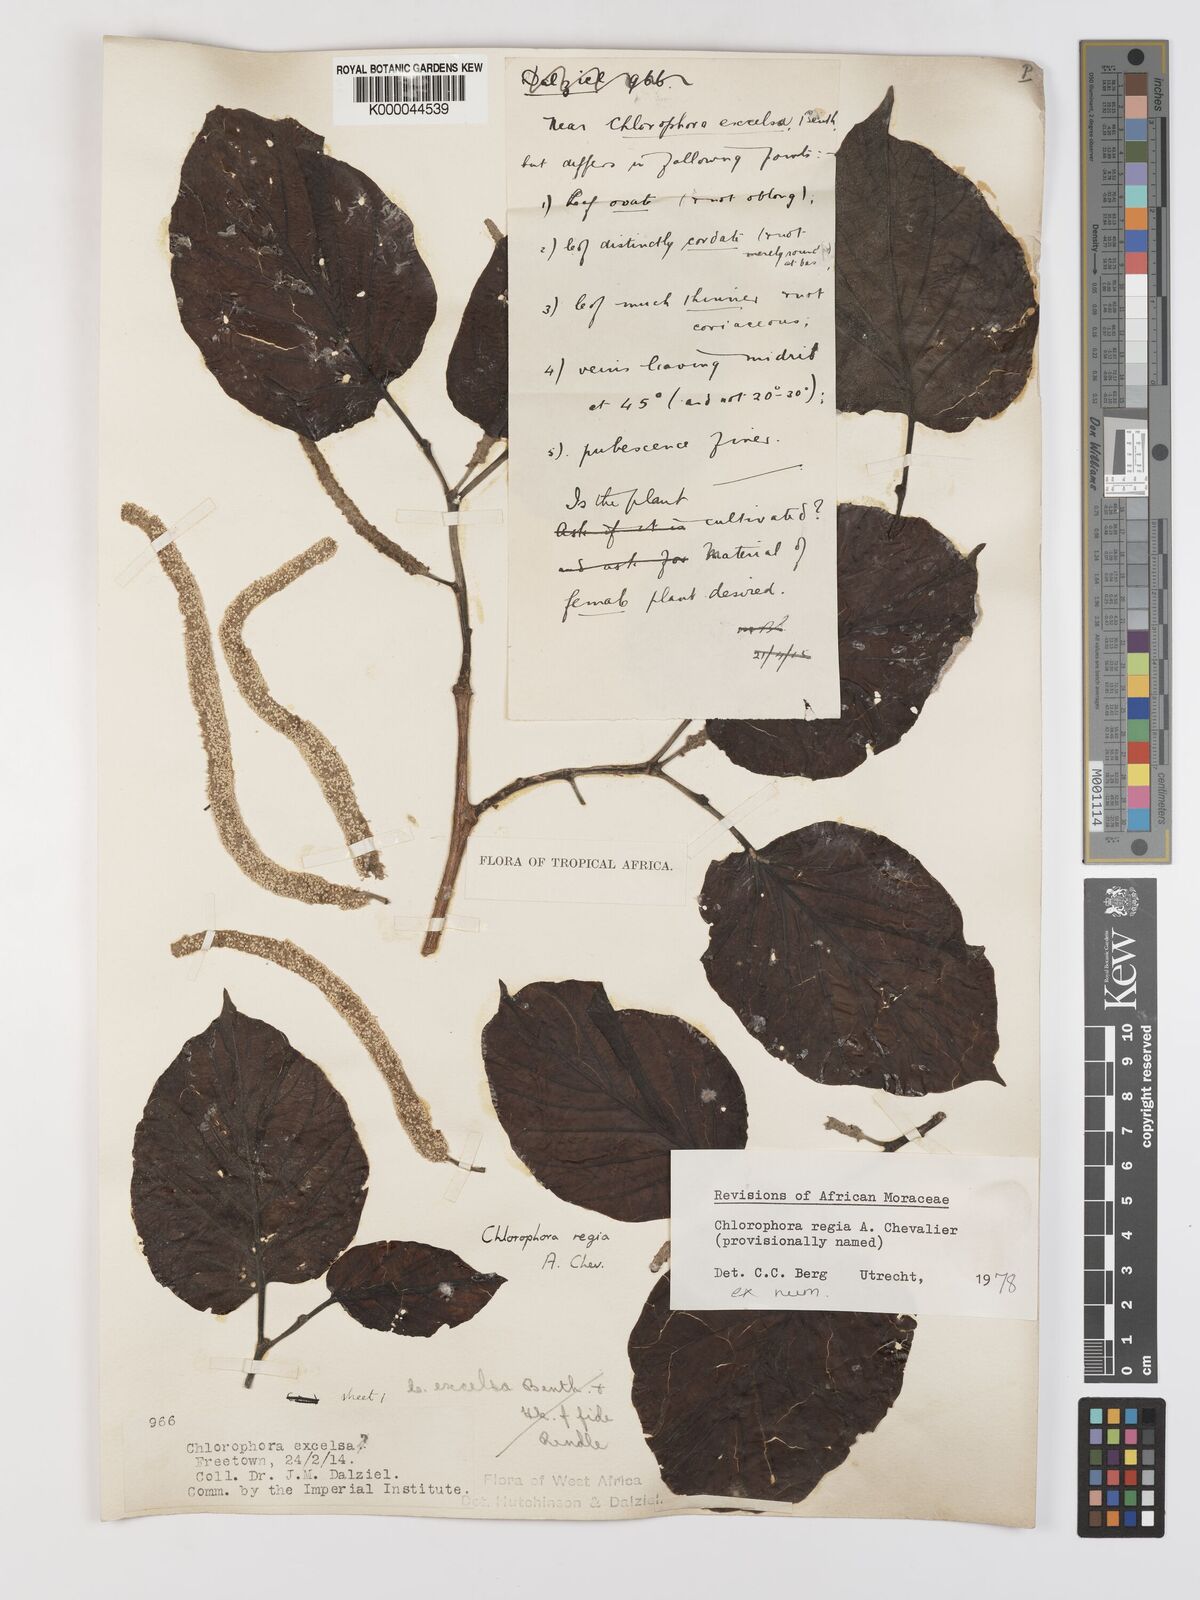 ROYAL BOTANIC GARDENS KEW
K000044539
Dalziel 966.
Near Chlorophora excelsa, Benth.
but differs in following points:-
1) leaf ovate (& not oblong);
2) leaf distinctly cordate (& not
merely round
at base);
3) leaf much thinner & not
coriaceous;
4) veins leaving midrib
at 45° (and not 20°-30°);
5). pubescence finer.
Is the plant
Ask if it is cultivated?
and ask for Material of
female plant desired.
P
FLORA OF TROPICAL AFRICA.
Chlorophora regia
A. Chev.
Revisions of African Moraceae
Chlorophora regia A. Chevalier
(provisionally named)
Det. C.C. Berg Utrecht, 1978
ex num.
sheet 1
excelsa Benth. &
Hk. f fide
Rendle
966
Chlorophora excelsa?
Freetown, 24/2/14.
Coll. Dr. J.M. Dalziel.
Comm. by the Imperial Institute.
Flora of West Africa
Det. Hutchinson & Dalziel.
inches
centimeters
Density
Don Williams
M001114
Kew
Royal Botanic Gardens
0 1 2 3 4 5 6 7 8 9 10
cm
copyright reserved